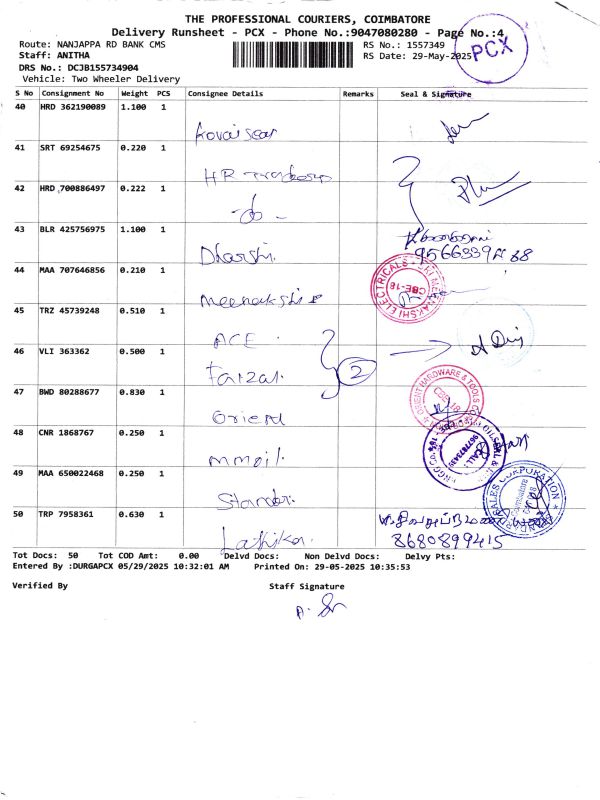 THE PROFESSIONAL COURIERS, COIMBATORE
Delivery Runsheet - PCX - Phone No.:9047080280 - Page No.:4
Route: NANJAPPA RD BANK CMS
RS No.: 1557349
Staff: ANITHA
RS Date: 29-May-2025
PCX
DRS No.: DCJB155734904
Vehicle: Two Wheeler Delivery
S No Consignment No Weight PCS Consignee Details Remarks Seal & Signature
40 HRD 362190089 1.100 1
41 SRT 69254675 0.220 1
HR
42 HRD 700886497 0.222 1
do -
43 BLR 425756975 1.100 1
Dharshi.
44 MAA 707646856 0.210 1
Meenakshi E
SRI MEENAKSHI ELECTRICALS
CBE-18
45 TRZ 45739248 0.510 1
ACE.
46 VLI 363362 0.500 1
Faizal.
2
47 BWD 80288677 0.830 1
Orient
ORIENT HARDWARE & TOOLS CO
CBE 18
48 CNR 1868767 0.250 1
mmoil.
49 MAA 650022468 0.250 1
SALES CORPORATION
50 TRP 7958361 0.630 1
Lathika.
8680899415
Tot Docs: 50 Tot COD Amt: 0.00 Delvd Docs: Non Delvd Docs: Delvy Pts:
Entered By :DURGAPCX 05/29/2025 10:32:01 AM Printed On: 29-05-2025 10:35:53
Verified By Staff Signature